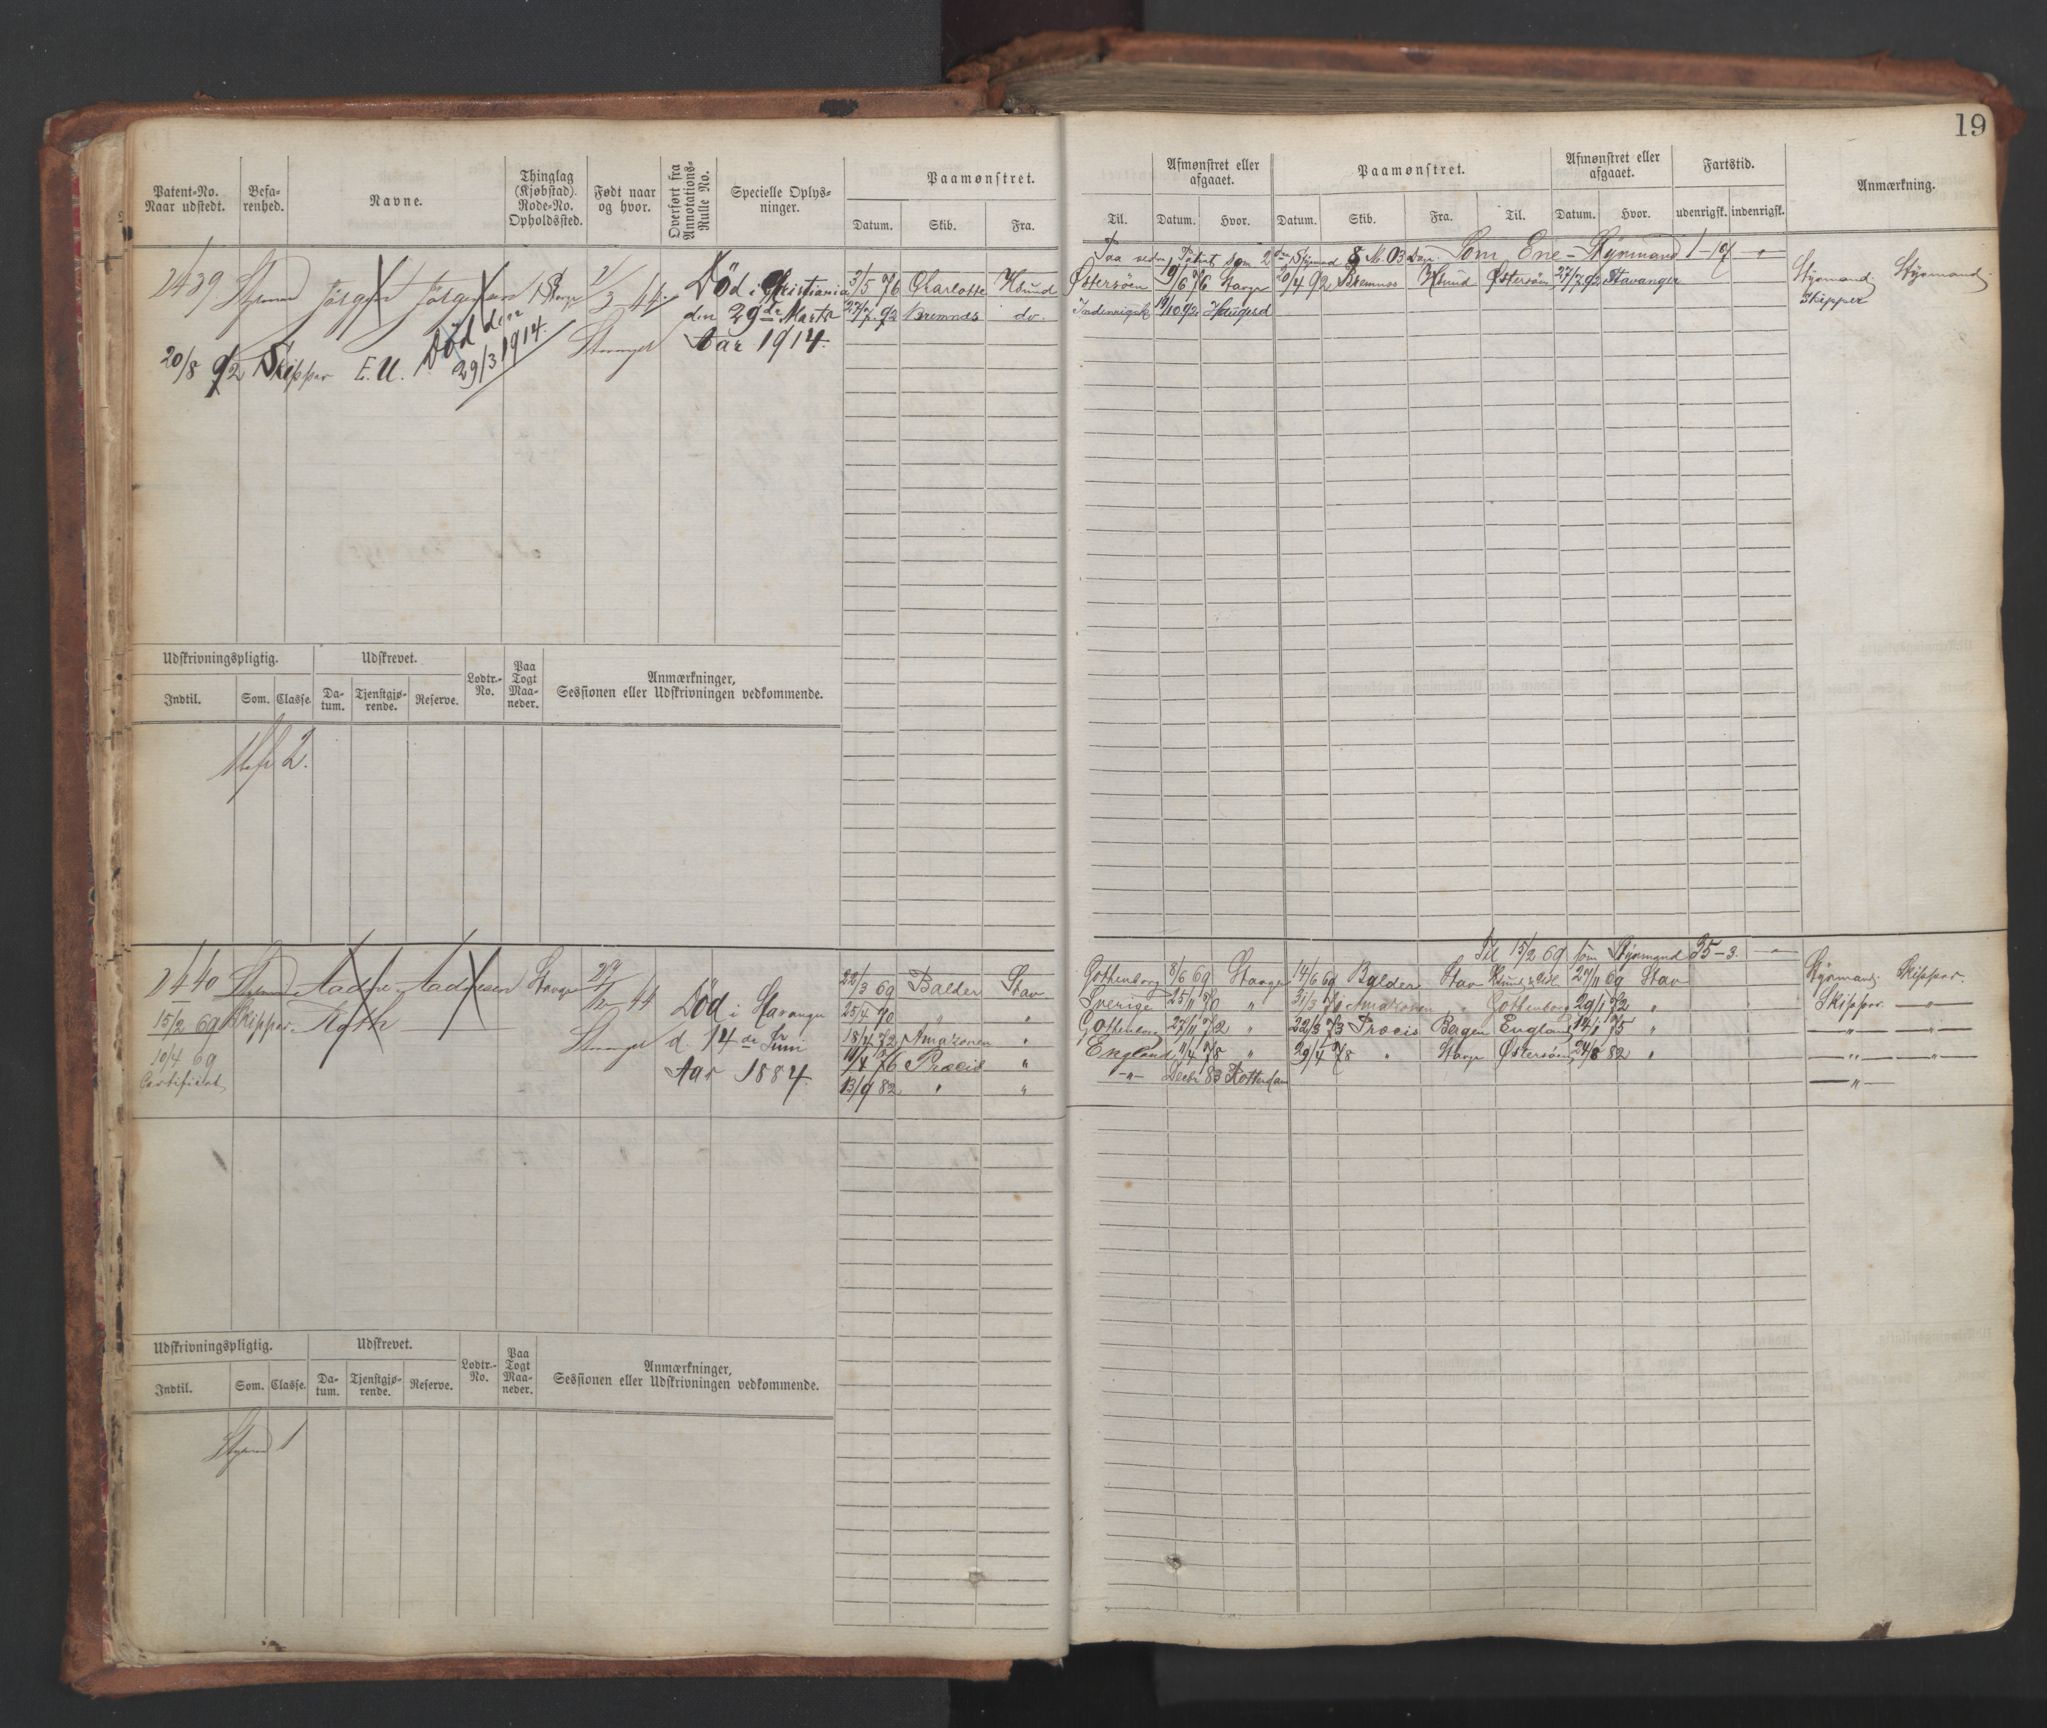 19
Patent-No.
Naar udstedt.
Befa-
renhed.
Navne.
Thinglag
(Kjøbstad).
Rode-No.
Opholdssted.
Født naar
og hvor.
Overført fra
Annotations-
Rulle No.
Specielle Oplys-
ninger.
Paamønstret.
Datum. Skib. Fra.
2439 Jørgen Jørgensen
Død i Christiania 3/5 76 Charlotte Hsund
den 29de Marts 27/7 92 Bremnæs do.
Aar 1914.
Stavanger
Død den
29/3 1914.
20/8 92 Skipper E. U.
Udskrivningspligtig. Udskrevet. Lodtr.-
No.
Paa
Togt
Maa-
neder.
Anmærkninger,
Sessionen eller Udskrivningen vedkommende.
Indtil. Som. Classe. Da-
tum.
Tjenstgjø-
rende.
Reserve.
2.
2440 Aadne Aadnesen Stavgr 44 22/3 69 Balder Stav
15/2 69 Skipper Roth Stavanger Død i Stavanger 25/4 70 " "
10/4 69 d. 14de Juni 18/4 72 Amazonen "
Certificat Aar 1884. 76 Præcis "
13/9 82 " "
Udskrivningspligtig. Udskrevet. Lodtr.-
No.
Paa
Togt
Maa-
neder.
Anmærkninger,
Sessionen eller Udskrivningen vedkommende.
Indtil. Som. Classe. Da-
tum.
Tjenstgjø-
rende.
Reserve.
Styrmd 1
Afmønstret eller
afgaaet.
Paamønstret.
Afmønstret eller
afgaaet.
Fartstid.
Anmærkning.
Til. Datum. Hvor. Datum. Skib. Fra. Til. Datum. Hvor. udenrigsk. indenrigsk.
Paa Patent som 2 Styrmd 8 M. 03 Som Ene-Styrmand 1-
Østersøen 19/6 76 Stavgr 20/4 92 Bremnæs Hsund Østersøen 27/7 92 Stavanger Styrmand Styrmand
Indenrigsk 19/10 92 Haugesd Skipper
Til 15/2 69 som Styrmand 35-3. -"-
Gothenborg 8/6 69 Stavgr 14/6 69 Balder Stav 27/11 69 Stav Styrmand Skipper.
Sverige 25/11 70 " 31/3 Amazonen " Gothenborg 29/1 72 " Skipper —"—
Gothenborg 27/11 72 " 22/3 73 Præcis Bergen England 14/1 75 " —"— —"—
England 78 " 29/4 78 " Stavgr Østersøen 24/8 82 " —"— —"—
—"— Decbr 83 Rotterdam —"—